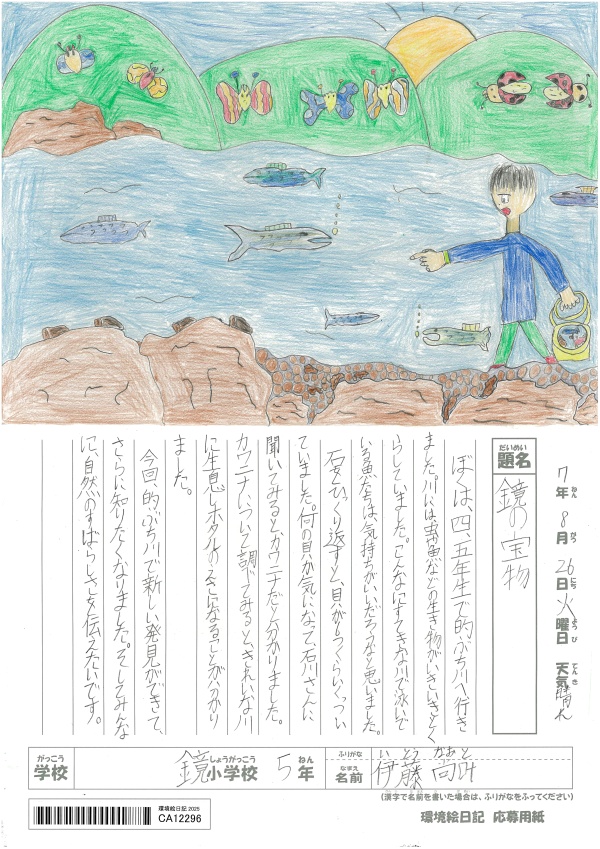 7年 8月 26日 火曜日 天気 晴れ
ねん がつ にち ようび てんき
だいめい
題名
鏡の宝物
ぼくは、四、五年生で的ぶち川へ行き
ました。川には虫や魚などの生き物がいきいきとく
らしていました。こんなにすてきな川で泳いで
いる魚たちは気持ちがいいだろうなと思いました。
石をひっくり返すと、貝がいくつくらいくっつい
ていました。何の貝か気になって、石川さんに
聞いてみると、カワニナだと分かりました。
カワニナについて調べてみると、きれいな川
に生息しホタルのえさになることが分かり
ました。
今回、的ぶち川で新しい発見ができて、
さらに知りたくなりました。そしてみんな
に、自然のすばらしさを伝えたいです。
がっこう
学校
鏡小学校 5年
しょうがっこう ねん
ふりがな
いとう なおと
なまえ
名前
伊藤 尚叶
(漢字で名前を書いた場合は、ふりがなをふってください)
環境絵日記 2025
CA12296
環境絵日記 応募用紙